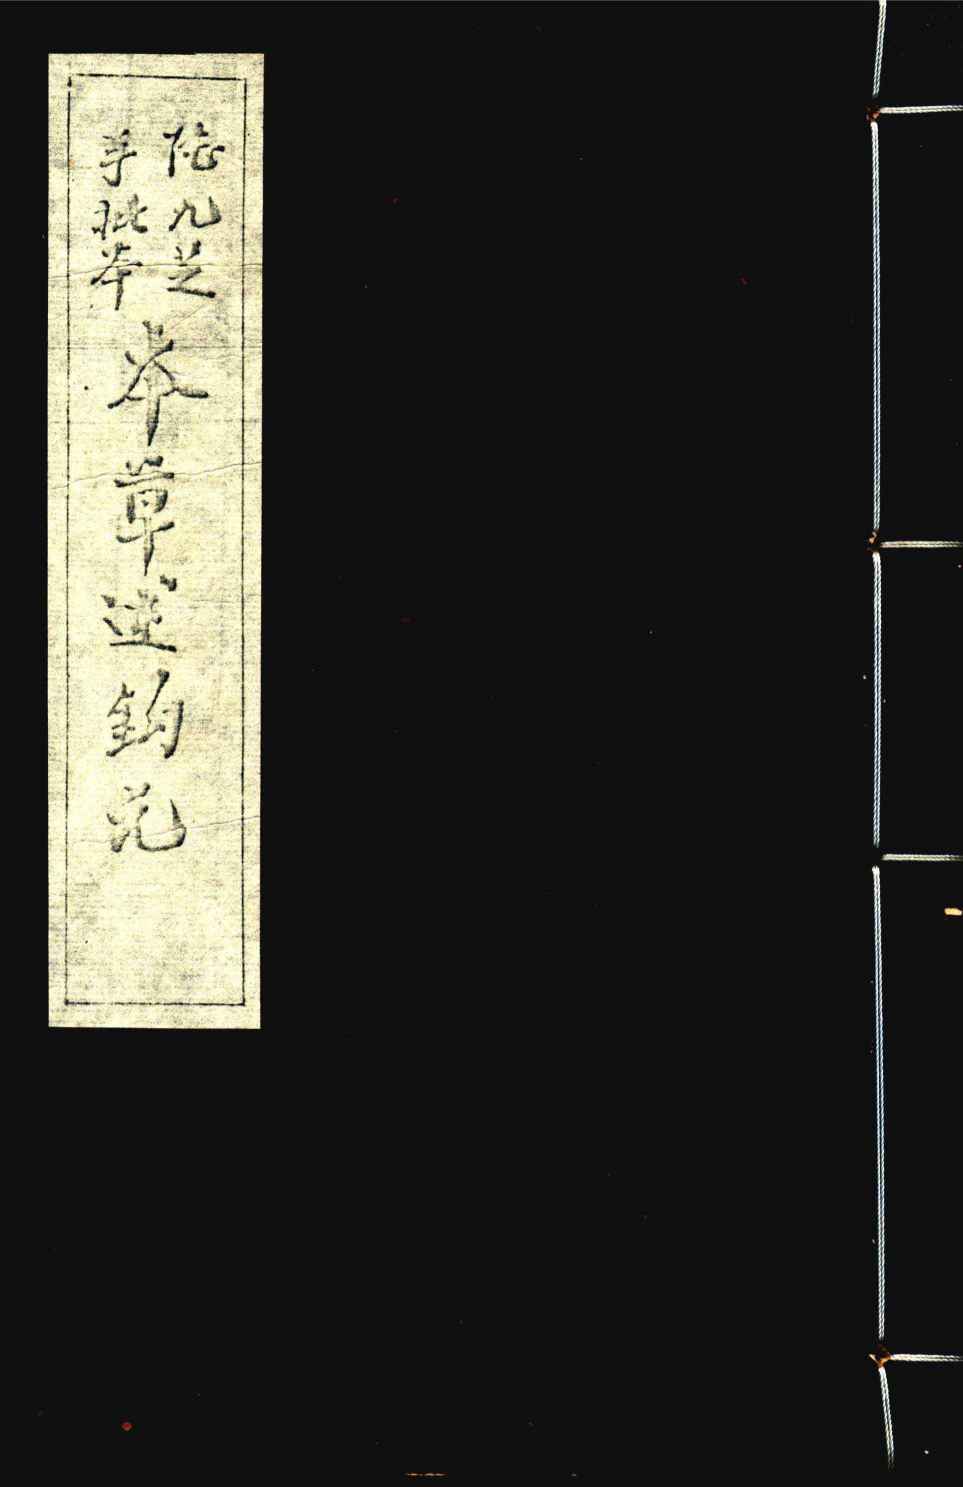 陸九芝
手批本
本草述鈎元